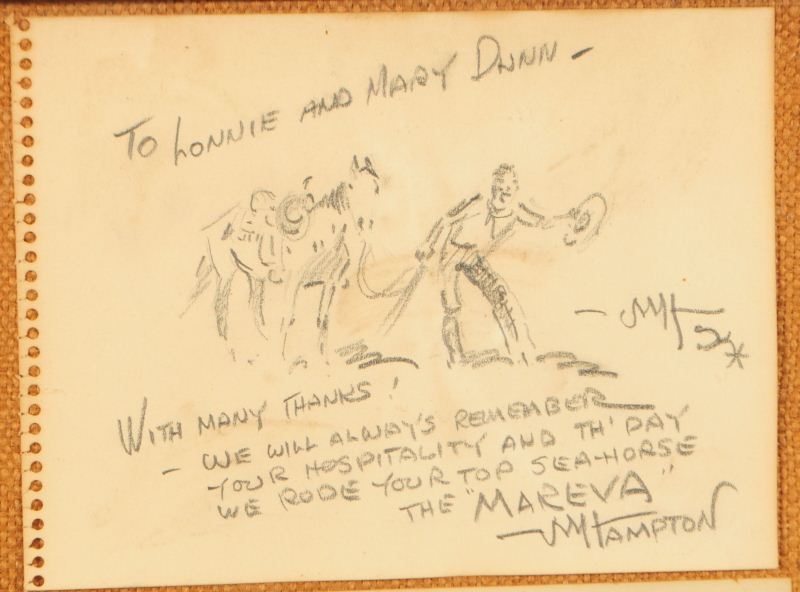 TO LONNIE AND MARY DUNN -
WITH MANY THANKS!
- WE WILL ALWAYS REMEMBER
YOUR HOSPITALITY AND TH' DAY
WE RODE YOUR TOP SEA-HORSE
THE "MAREVA"
HAMPTON